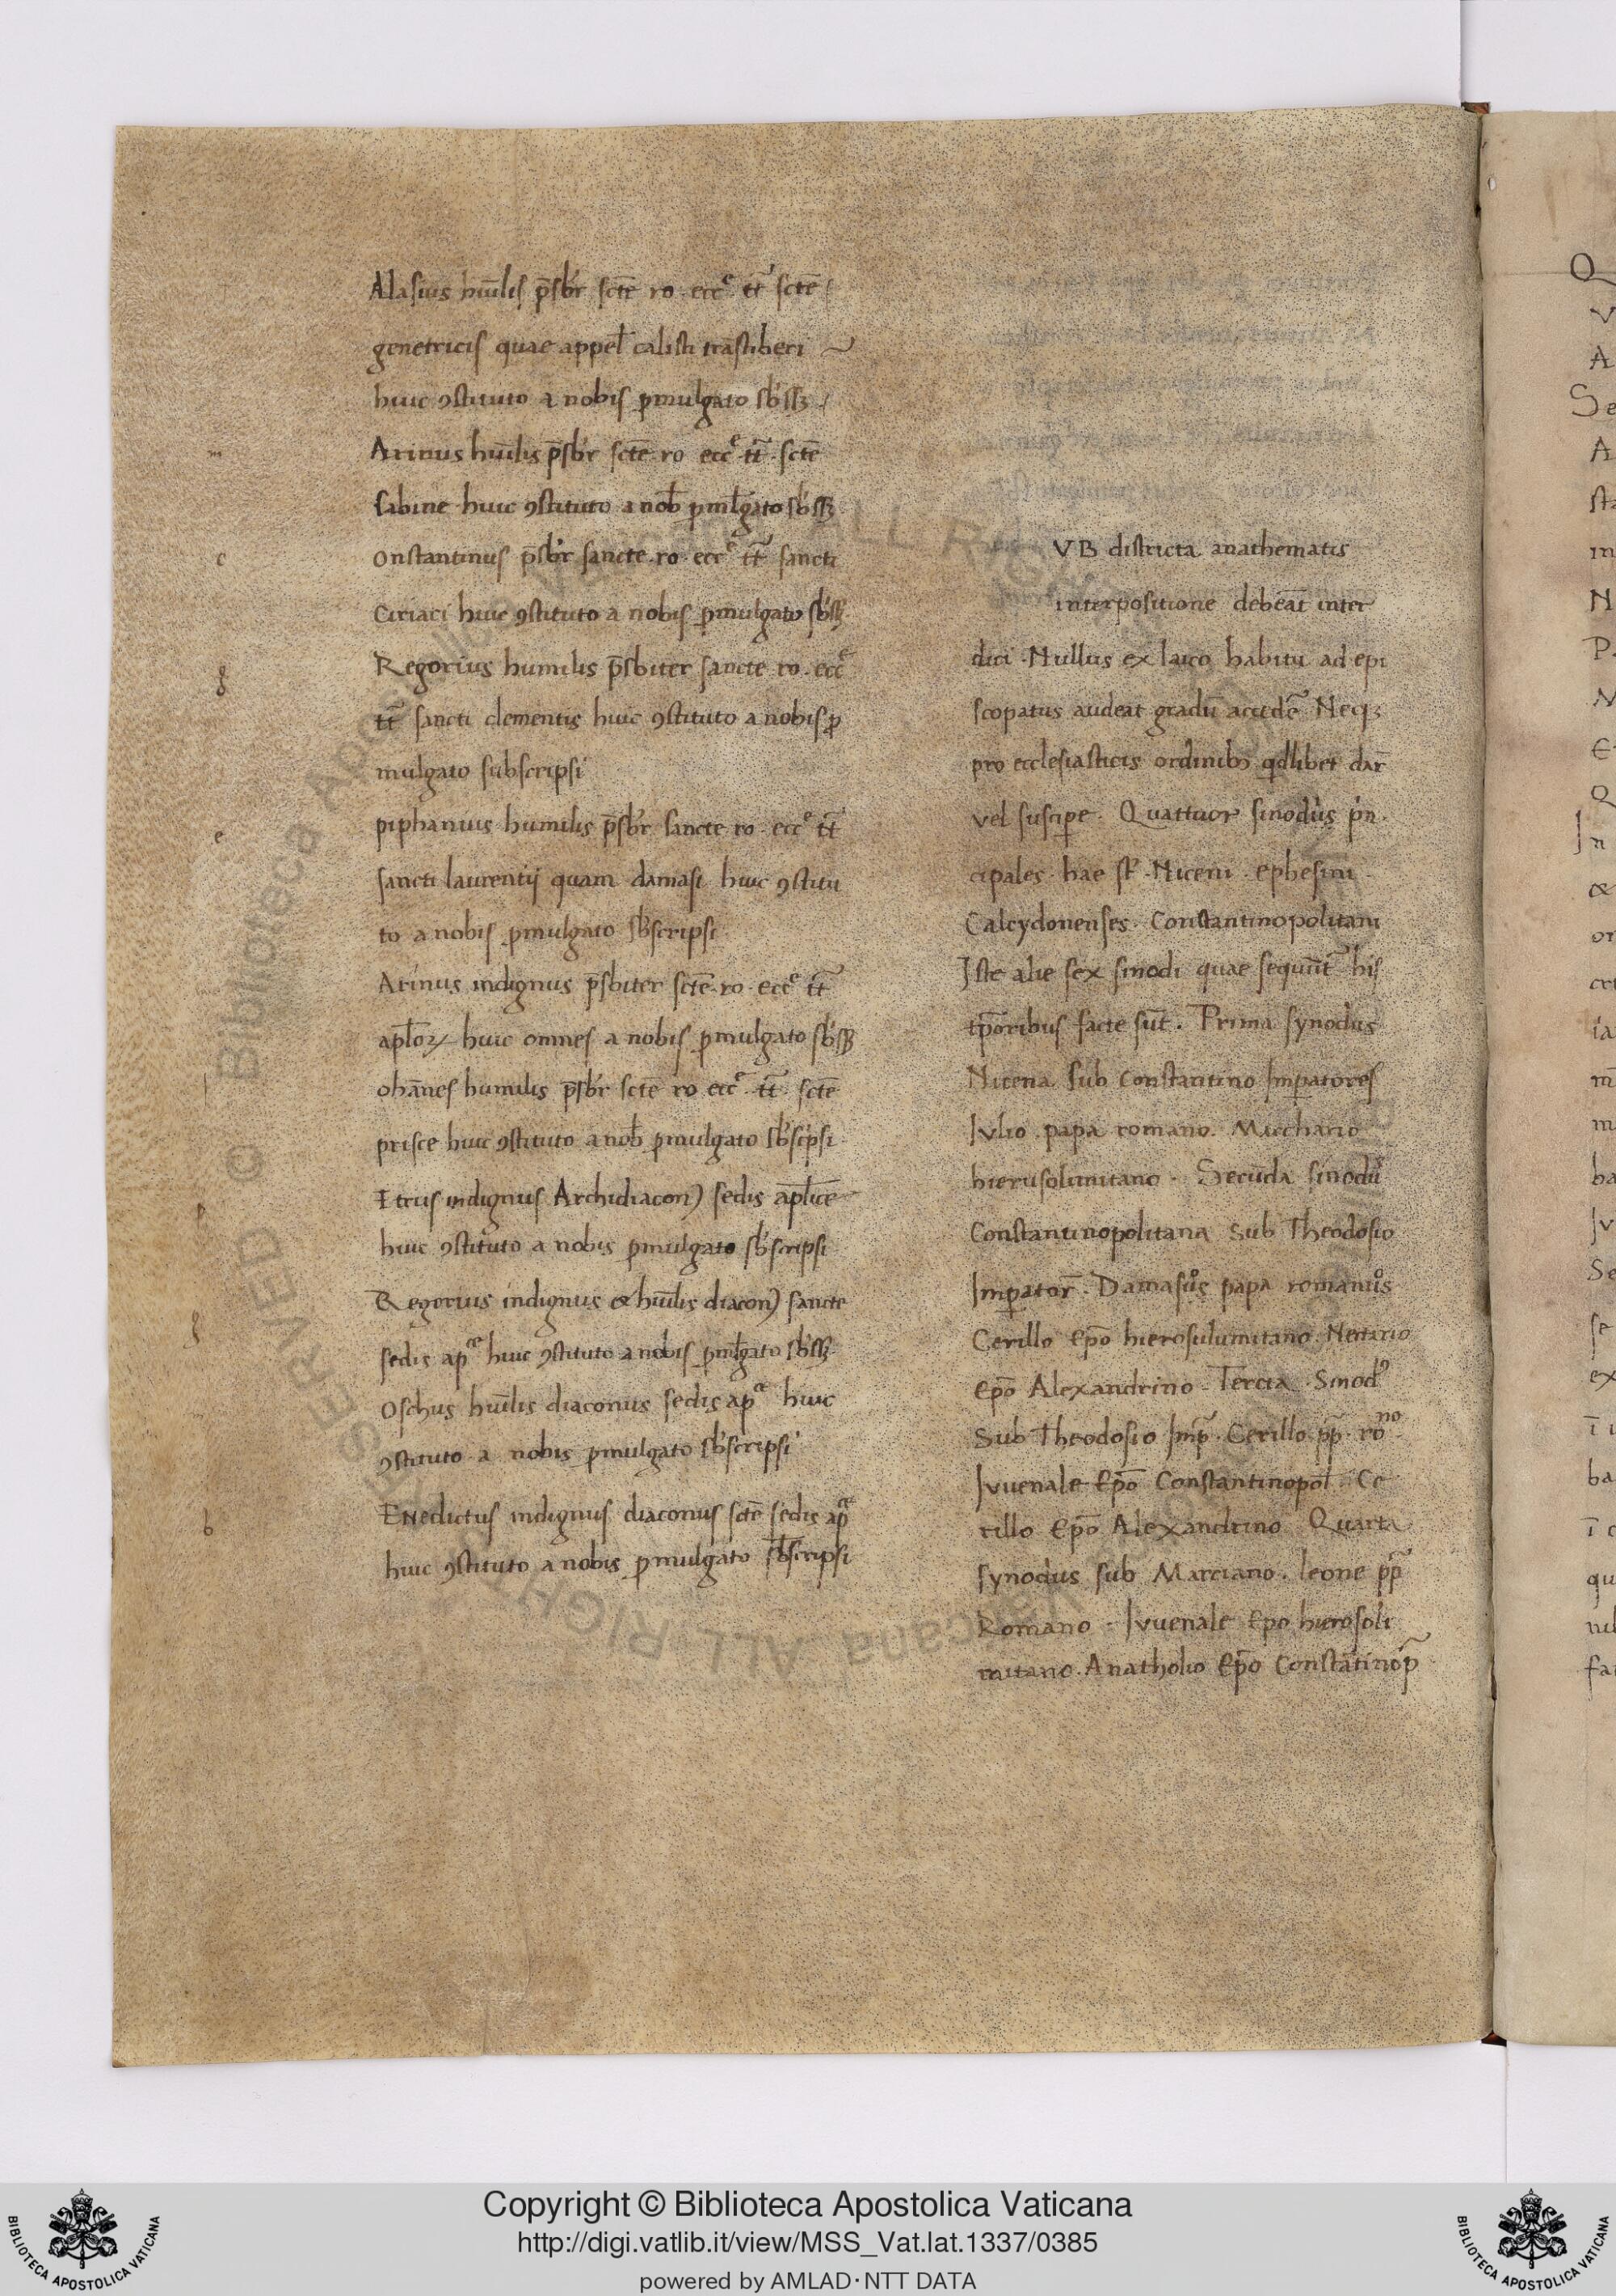 Alasius hūilis p̄sbr̄ sctē ro ecc̄ᵉ tt̄ sctē
genetricis quae appell̄ calisti trāstiberi
huic ꝯstituto a nobis ꝓmulgato sb̄ss
m
Arinus hūilis p̄sbr̄ sctē. ro ecc̄ᵉ tt̄. sctē
sabine huic ꝯstituto a nob̄ ꝓml̄gato sb̄ss
c
onstantinus p̄sbr̄ sancte. ro. ecc̄ᵉ tt̄ sancti
Ciriaci huic ꝯstituto a nobis ꝓmulgato sb̄ss
g
Regorius humilis p̄sbiter sancte ro. ecc̄ᵉ
tt̄ sancti clementis huic ꝯstituto a nobis ꝓ
mulgato subscripsi
e
piphanius humilis p̄sbr̄ sancte ro. ecc̄ᵉ tt̄
sancti laurentij quam damasi huic ꝯstitu
to a nobis ꝓmulgato sb̄scripsi
Arinus indignus p̄sbiter sctē. ro. ecc̄ᵉ tt̄
apl̄oꝝ huic omnes a nobis ꝓmulgato sb̄ss
ı
ohān̄es humilis p̄sbr̄ sctē ro ecc̄ᵉ tt̄ sctē
prisce huic ꝯstituto a nob̄ ꝓmulgato sb̄scipsi
p
Etrus indignus Archidiacon) sedis apl̄icē
huic ꝯstituto a nobis ꝓmulgato sb̄scripsi
g
Regorius indignus & hūilis diacon) sancte
sedis apᵉ huic ꝯstituto a nobis ꝓml̄gato sb̄ss
Oschus hūilis diaconus sedis apᵉ huic
ꝯstituto a nobis ꝓmulgato sb̄scripsi
b
ENedictus indignus diaconus sctē sedis apᵉ
huic ꝯstituto a nobis ꝓmulgato sb̄scripsi
VB districta anathematis
interpositione debeāt inter
dici. Nullus ex laico habitu ad epi
scopatus audeat gradū accedē Neqꝫ
pro ecclesiasticis ordinibꝫ qdlibet dar̄
vel suscip̱e. Quattuor sinodus pͥn
cipales hae st̄. Niceni. ephesini
Calcydonenses. Constantinopolitani
Iste alie sex sinodi quae sequūt̄ his
tp̄oribus facte sut̄. Prima synodus
Nicena. sub constantino Imperatores
Iulio papa romano. Macchario
hierusolimitano. Secūda sinodū
Constantinopolitana sub Theodosio
Imperator̄. Damasus papa romanus
Cerillo epō hierosulumitano. Nectario
epō Alexandrino. Tercia. Sinodꝰ
Sub Theodosio Imp̄. Cerillo. pp̄. rōⁿᵒ
Iuuenale epō Constantinopol̄. Ce
rillo epō Alexandrino Quarta
synodus sub Marciano. leone pp̄
Romano. Iuuenale epo hierosoli
mitano. Anatholio epō Constātinop̄
Copyright © Biblioteca Apostolica Vaticana
http://digi.vatlib.it/view/MSS_Vat.lat.1337/0385
powered by AMLAD·NTT DATA
BIBLIOTECA APOSTOLICA VATICANA
BIBLIOTECA APOSTOLICA VATICANA